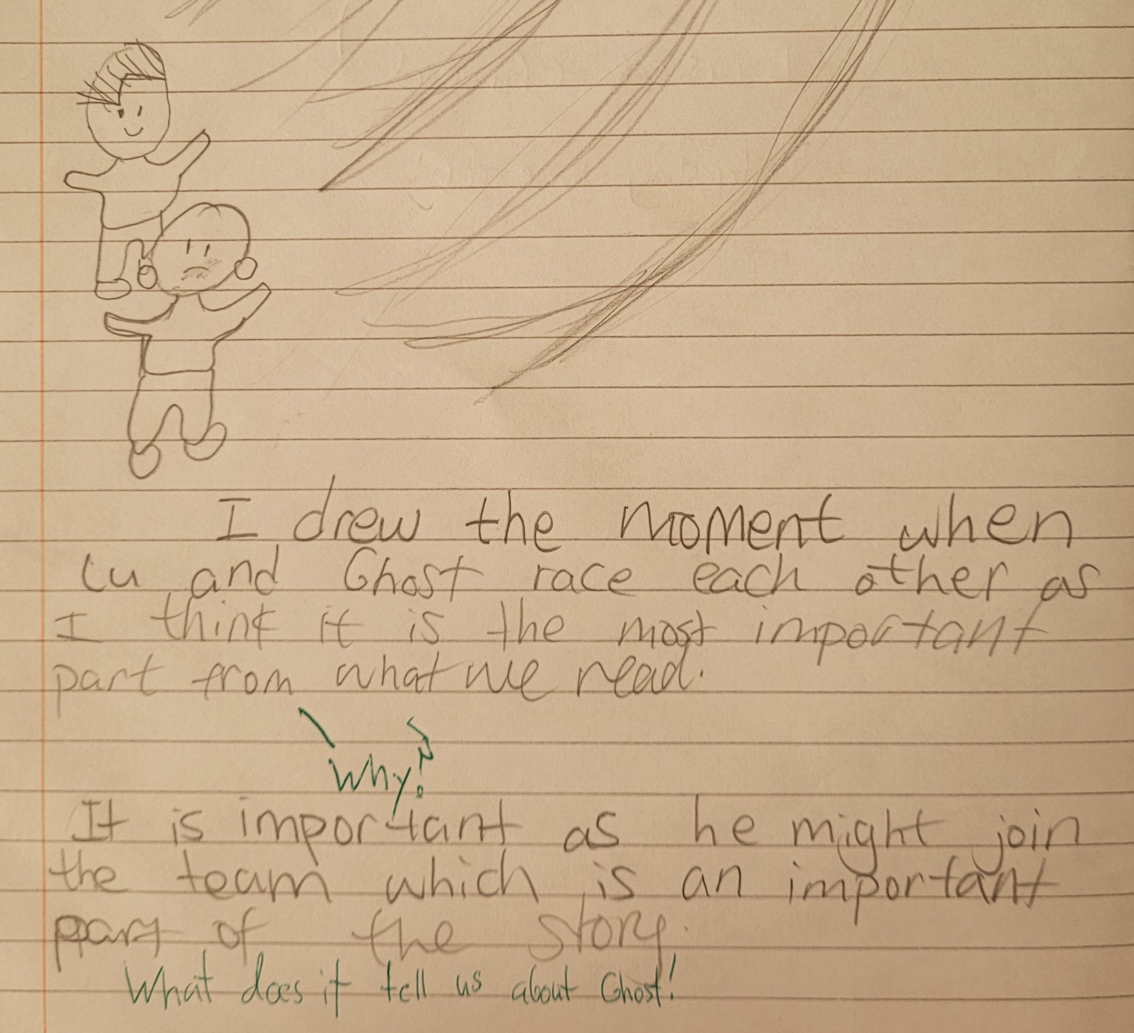 I drew the moment when
Lu and Ghost race each other as
I think it is the most important
part from what we read.
Why?
It is important as he might join
the team which is an important
part of the story.
What does it tell us about Ghost!